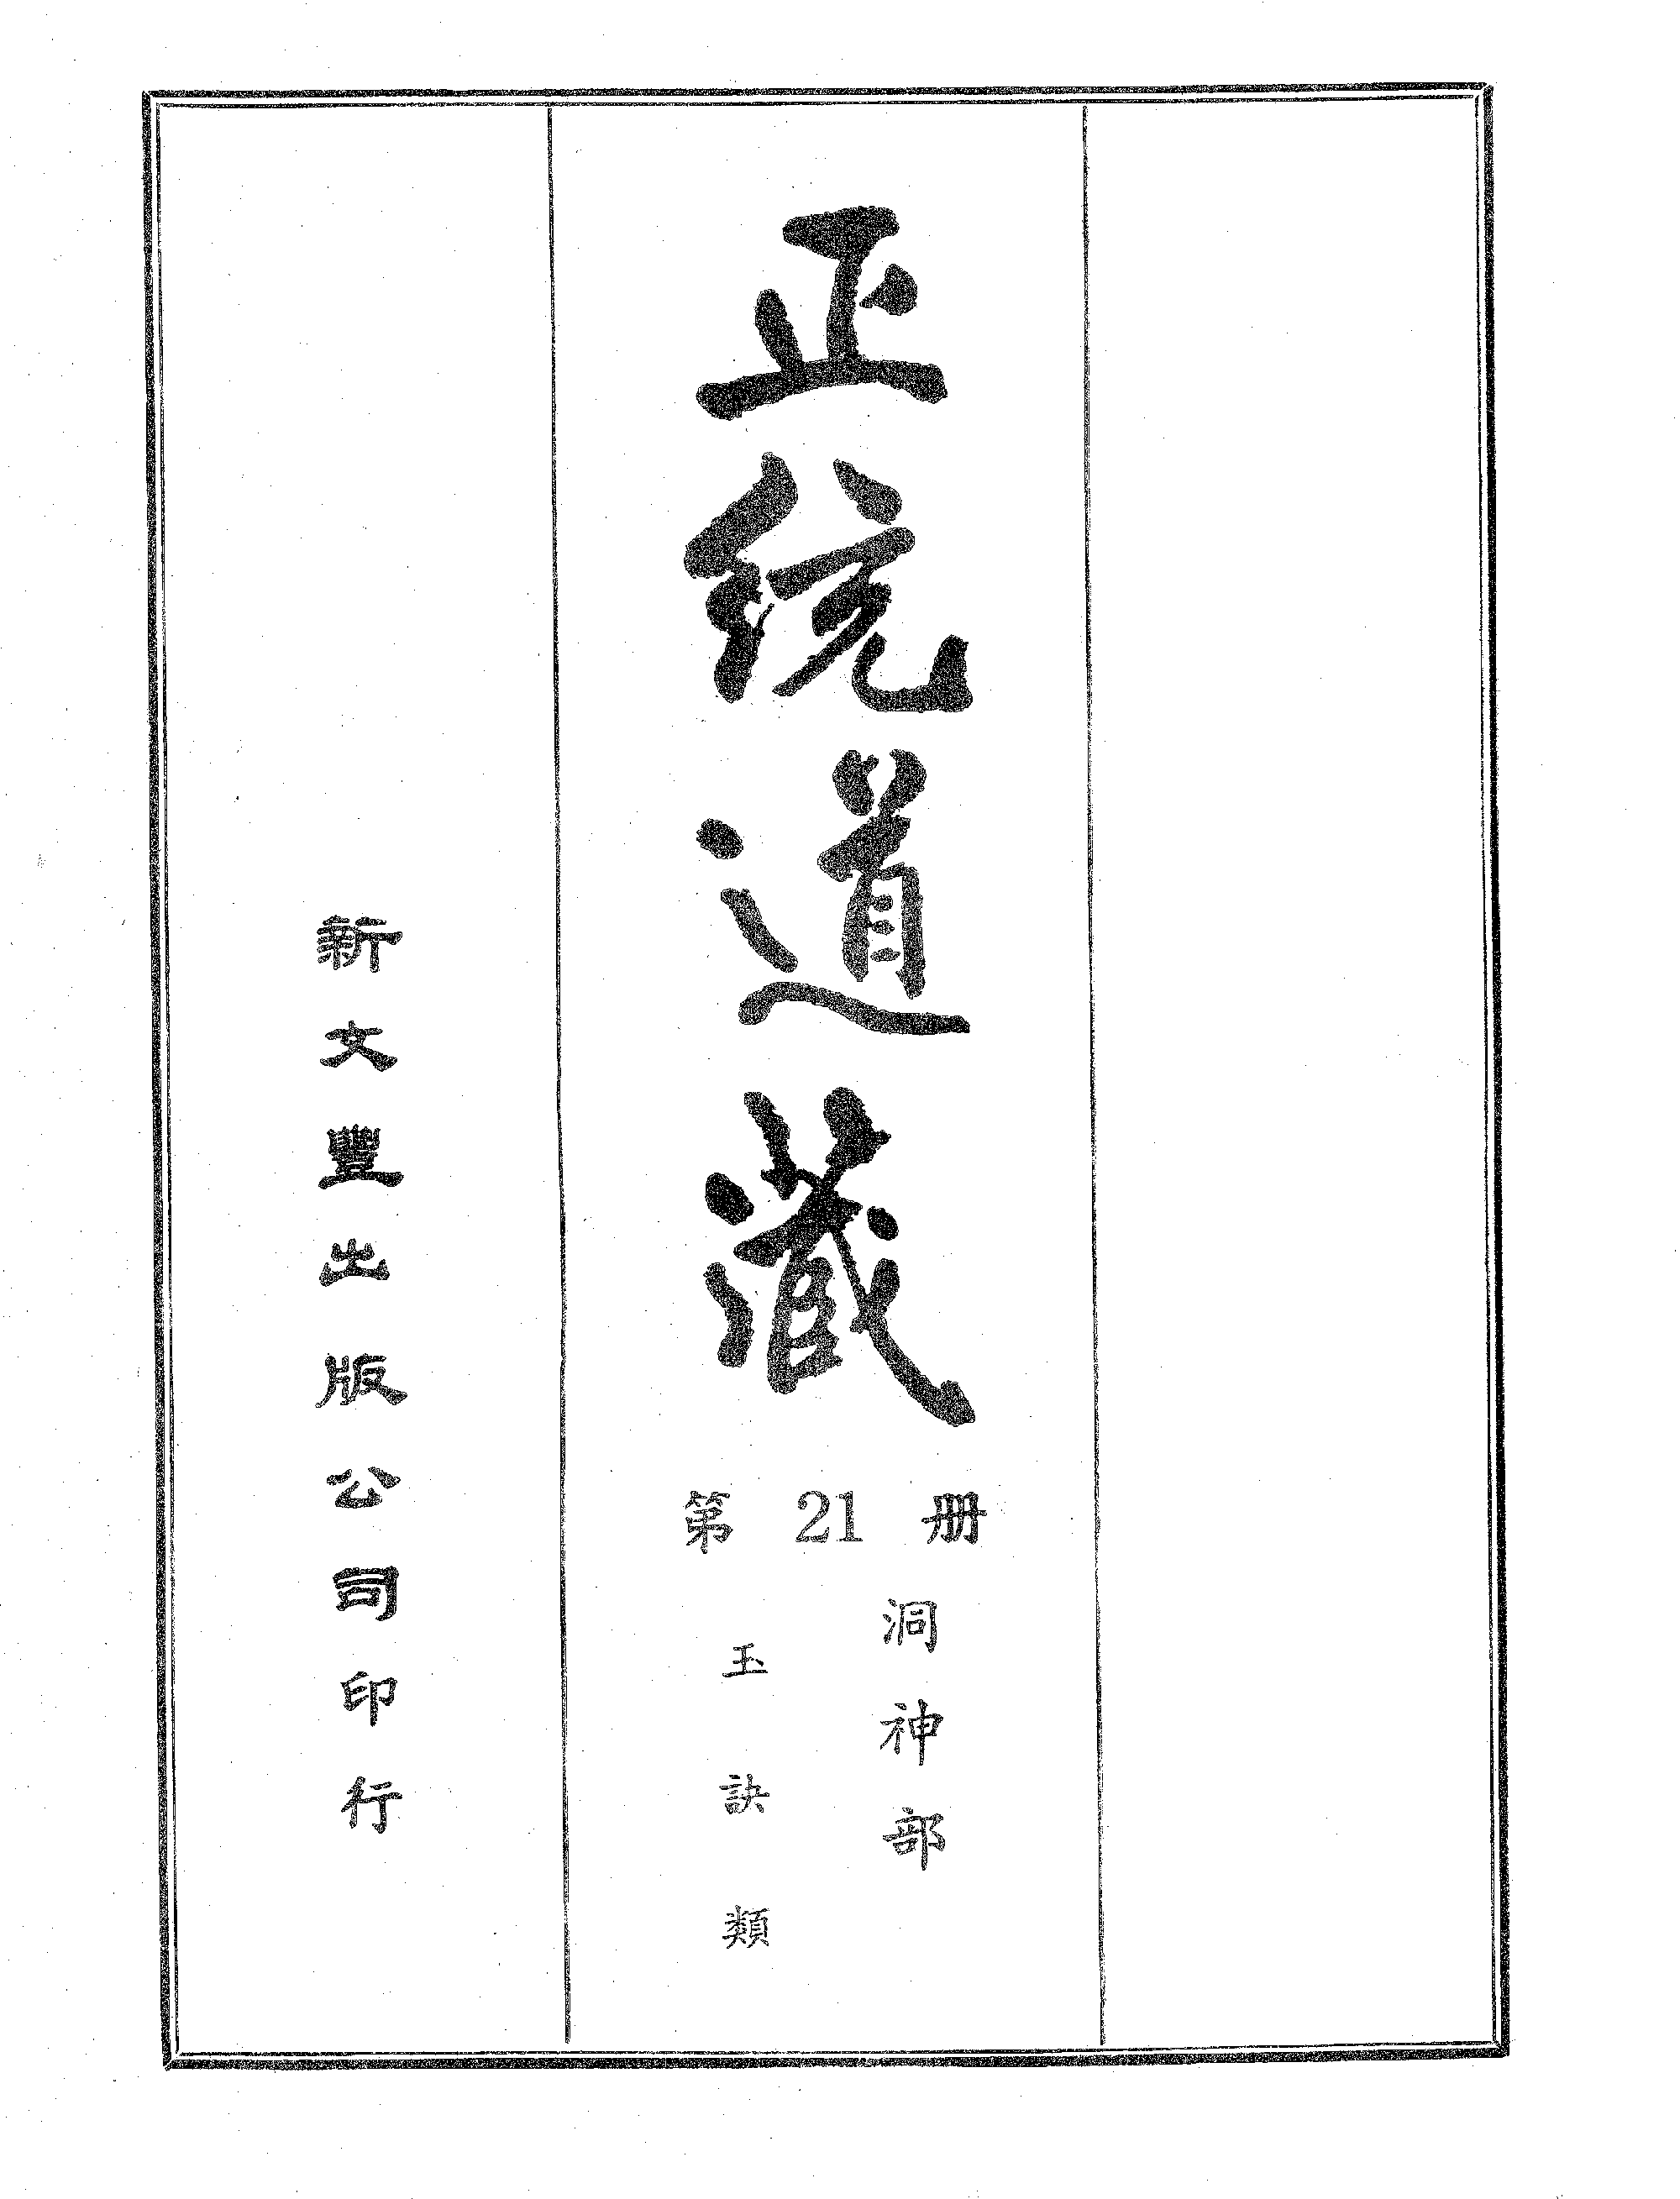 正統道藏
第21册
洞神部
玉訣類
新文豐出版公司印行